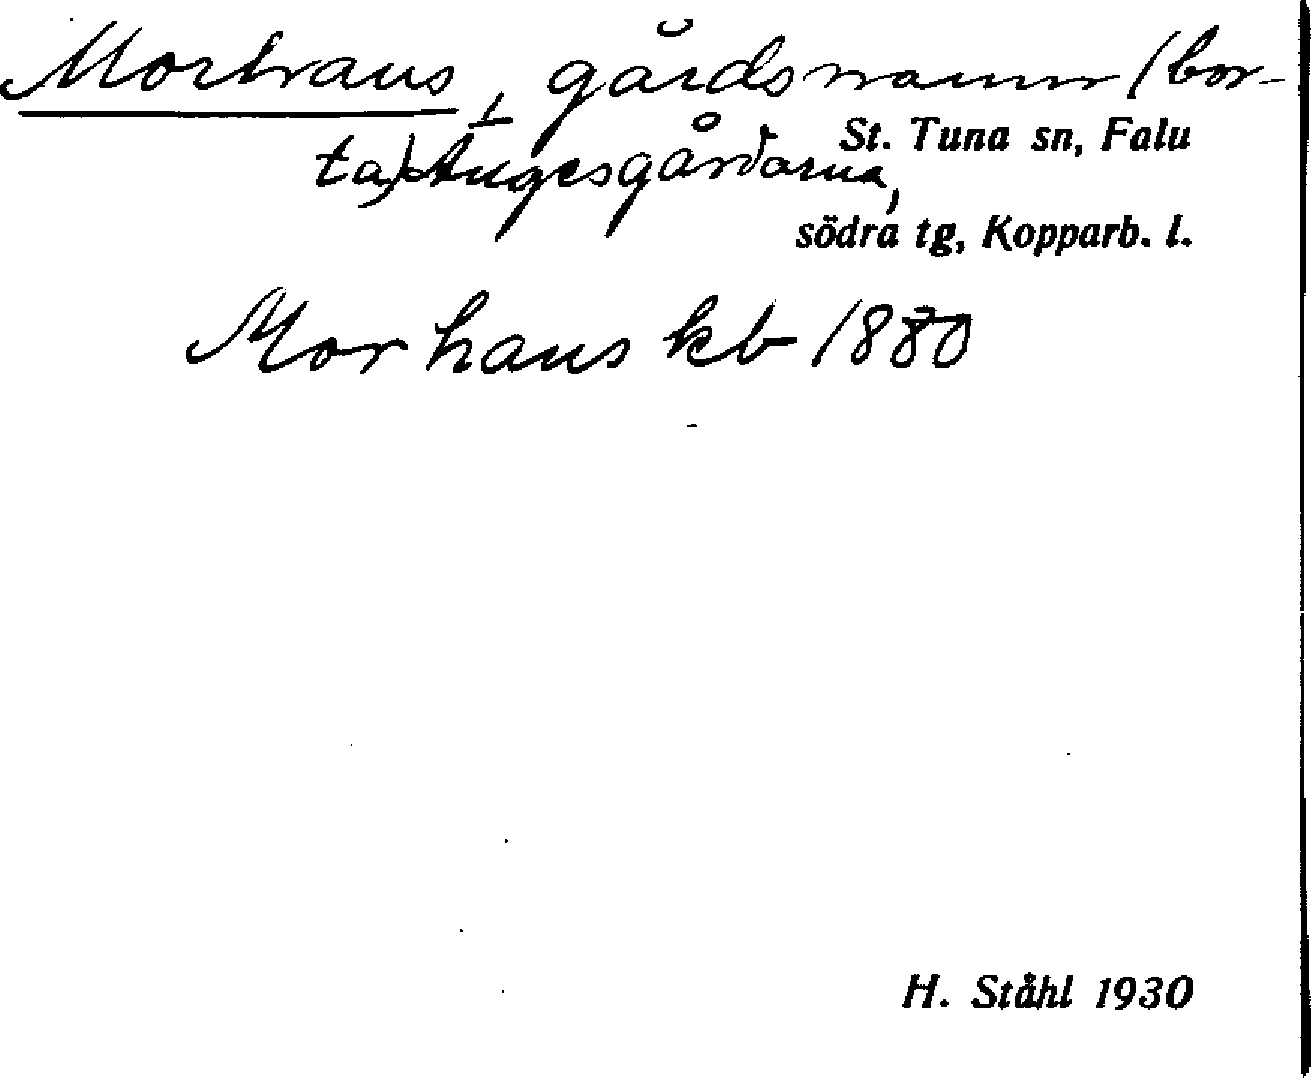 Morhans, gårdsnamn (bor-
ta) Ängesgårdarna,
St. Tuna sn, Falu
södra tg, Kopparb. l.
Morhans kb 1880
H. Ståhl 1930